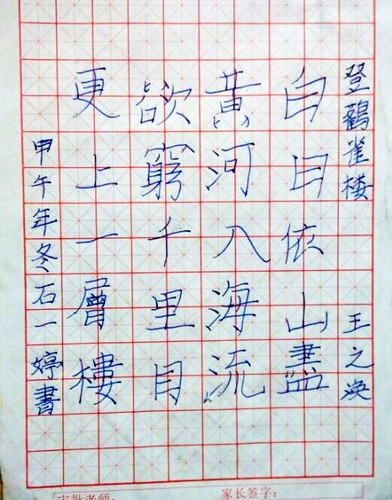 登鸛雀樓 王之渙
白日依山盡
黃河入海流
欲窮千里目
更上一層樓
甲午年冬石一婷書
审批老师:
家长签字: